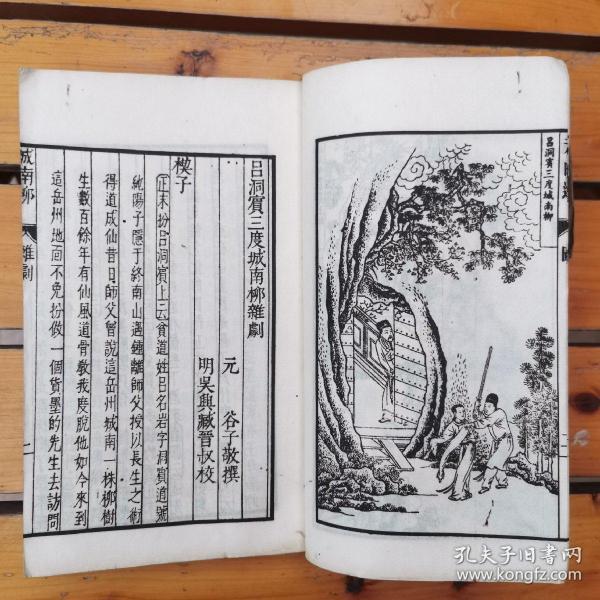 吕洞賓三度城南柳
吕洞賓三度城南柳雜劇
元 谷子敬撰
明吳興臧晉叔校
楔子
正末扮吕洞賓上云貧道姓吕名岩字洞賓道號
純陽子隱于終南山遇鍾離師父授以長生之術
得道成仙昔日師父曾說這岳州城南一株柳樹
生數百餘年有仙風道骨教我度脫他如今來到
這岳州地面不免扮做一個貨墨的先生去訪問
城南柳
雜劇
一
孔夫子旧书网
www.kongfz.com